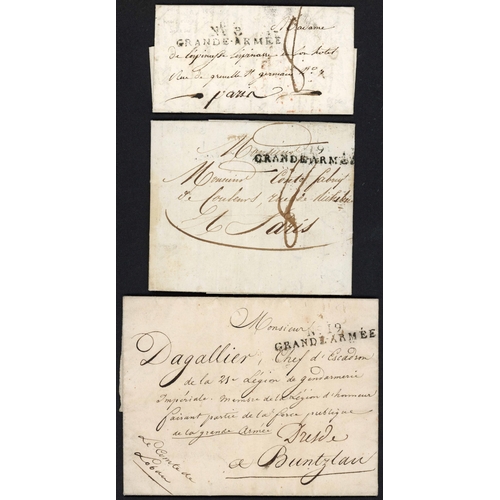 No. 2
GRANDE-ARMÉE
à Madame
en son hôtel
Rue de grenelle St germain
8
paris
Monsieur
19
GRANDE-ARMÉE
Monsieur
de Couleurs, rue de
8
A Paris
Monsieur
No. 19
GRANDE-ARMÉE
Dagallier, Chef d'Escadron
de la 21e Légion de Gendarmerie
Impériale, Membre de la Légion d'honneur
faisant partie de la force publique
de la grande Armée
Dresde
a Buntzlau
Le Comte de
Lobau